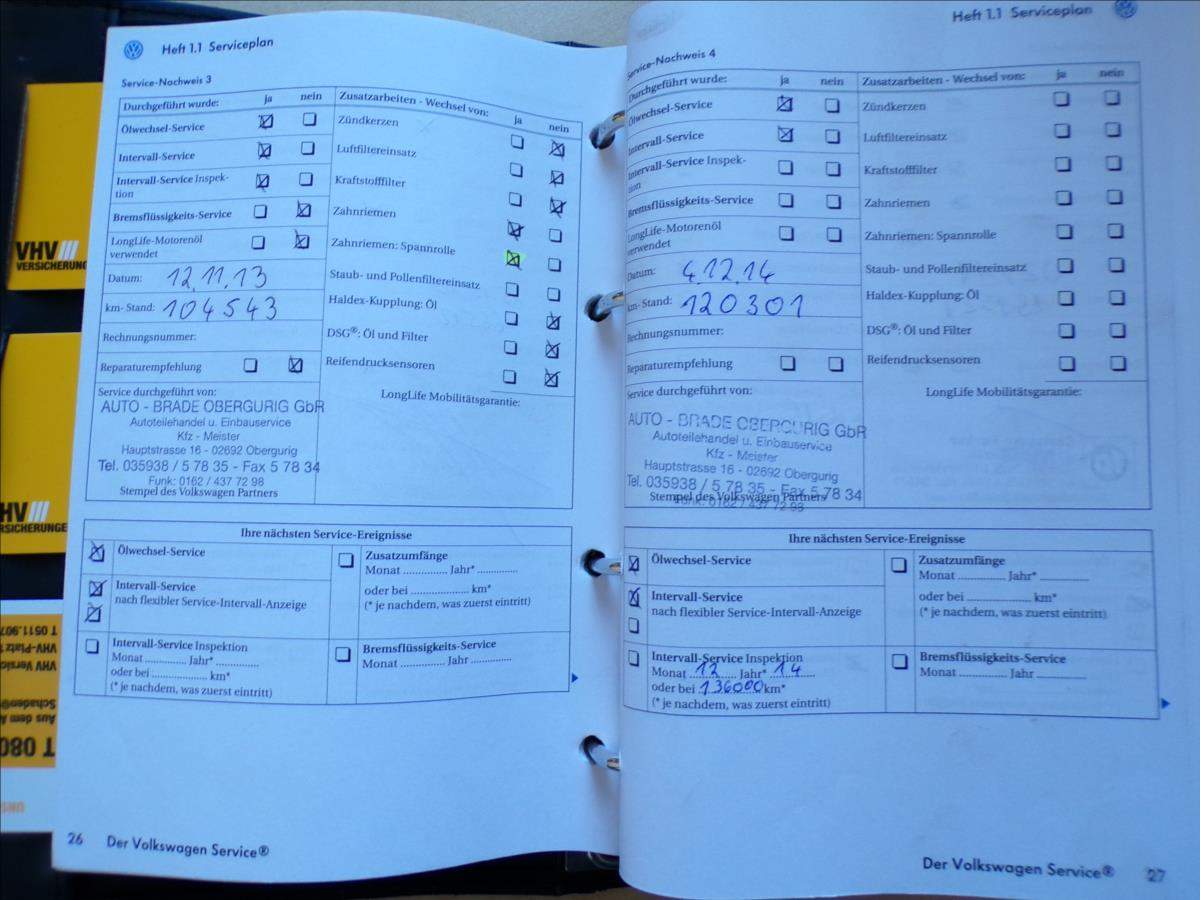 Heft 1.1 Serviceplan
Service-Nachweis 3
Durchgeführt wurde: ja nein
Ölwechsel-Service
Intervall-Service
Intervall-Service Inspek-
tion
Bremsflüssigkeits-Service
LongLife-Motorenöl
verwendet
Datum: 12.11.13
km- Stand: 104543
Rechnungsnummer:
Reparaturempfehlung
Service durchgeführt von:
AUTO - BRADE OBERGURIG GbR
Autoteilehandel u. Einbauservice
Kfz - Meister
Hauptstrasse 16 - 02692 Obergurig
Tel. 035938 / 5 78 35 - Fax 5 78 34
Funk: 0162 / 437 72 98
Stempel des Volkswagen Partners
Zusatzarbeiten - Wechsel von: ja nein
Zündkerzen
Luftfiltereinsatz
Kraftstofffilter
Zahnriemen
Zahnriemen: Spannrolle
Staub- und Pollenfiltereinsatz
Haldex-Kupplung: Öl
DSG®: Öl und Filter
Reifendrucksensoren
LongLife Mobilitätsgarantie:
Ihre nächsten Service-Ereignisse
Ölwechsel-Service
Intervall-Service
nach flexibler Service-Intervall-Anzeige
Intervall-Service Inspektion
Monat .............. Jahr* ..............
oder bei .......................... km*
(* je nachdem, was zuerst eintritt)
Zusatzumfänge
Monat .............. Jahr* ..............
oder bei .......................... km*
(* je nachdem, was zuerst eintritt)
Bremsflüssigkeits-Service
Monat .............. Jahr ..............
26 Der Volkswagen Service®
Heft 1.1 Serviceplan
Service-Nachweis 4
Durchgeführt wurde: ja nein
Ölwechsel-Service
Intervall-Service
Intervall-Service Inspek-
tion
Bremsflüssigkeits-Service
LongLife-Motorenöl
verwendet
Datum: 4.12.14
km- Stand: 120301
Rechnungsnummer:
Reparaturempfehlung
Service durchgeführt von:
AUTO - BRADE OBERGURIG GbR
Autoteilehandel u. Einbauservice
Kfz - Meister
Hauptstrasse 16 - 02692 Obergurig
Tel. 035938 / 5 78 35 - Fax 5 78 34
Stempel des Volkswagen Partners
Funk: 0162 / 437 72 98
Zusatzarbeiten - Wechsel von: ja nein
Zündkerzen
Luftfiltereinsatz
Kraftstofffilter
Zahnriemen
Zahnriemen: Spannrolle
Staub- und Pollenfiltereinsatz
Haldex-Kupplung: Öl
DSG®: Öl und Filter
Reifendrucksensoren
LongLife Mobilitätsgarantie:
Ihre nächsten Service-Ereignisse
Ölwechsel-Service
Intervall-Service
nach flexibler Service-Intervall-Anzeige
Intervall-Service Inspektion
Monat 12 Jahr* 14
oder bei 136000 km*
(* je nachdem, was zuerst eintritt)
Zusatzumfänge
Monat .............. Jahr* ..............
oder bei .......................... km*
(* je nachdem, was zuerst eintritt)
Bremsflüssigkeits-Service
Monat .............. Jahr ..............
Der Volkswagen Service® 27
VHV
VERSICHERUNG
HV
RSICHERUNGE
T 0511.907
VHV-Platz
VHV Versic
Schaden
Aus dem A
T 080